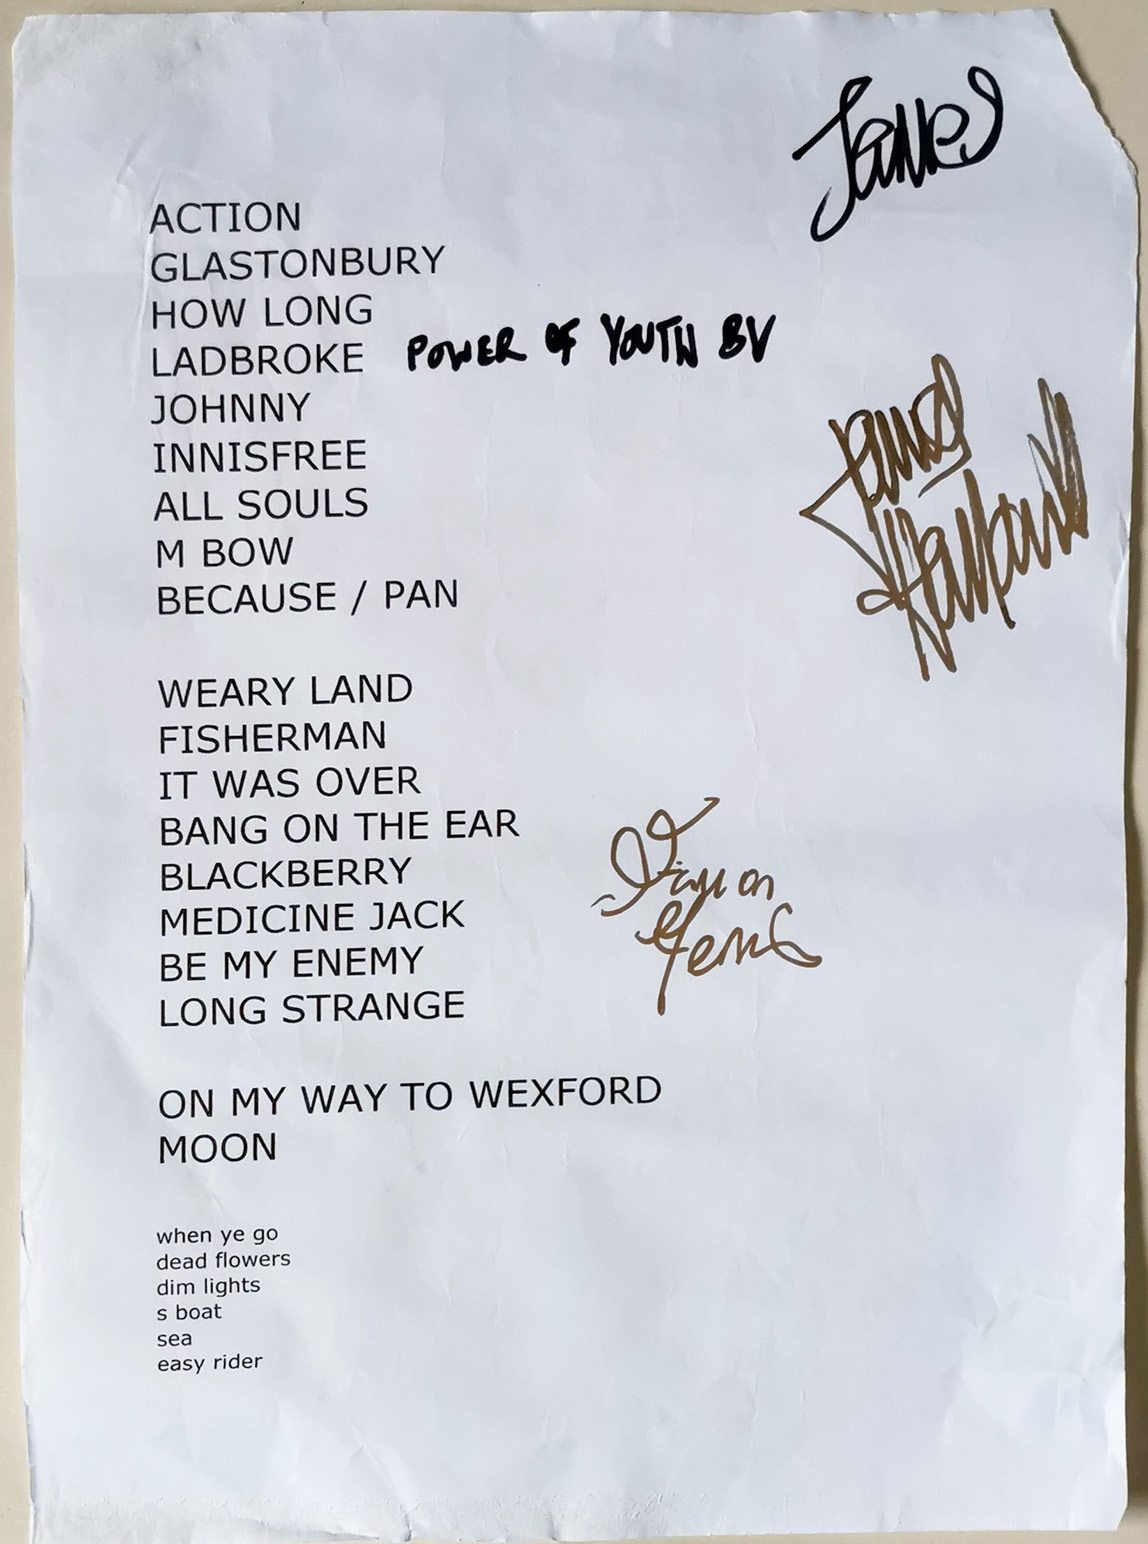 James
ACTION
GLASTONBURY
HOW LONG
LADBROKE POWER OF YOUTH BV
JOHNNY
INNISFREE
ALL SOULS
M BOW
BECAUSE / PAN
James
WEARY LAND
FISHERMAN
IT WAS OVER
BANG ON THE EAR
BLACKBERRY
MEDICINE JACK
BE MY ENEMY
LONG STRANGE
ON MY WAY TO WEXFORD
MOON
when ye go
dead flowers
dim lights
s boat
sea
easy rider